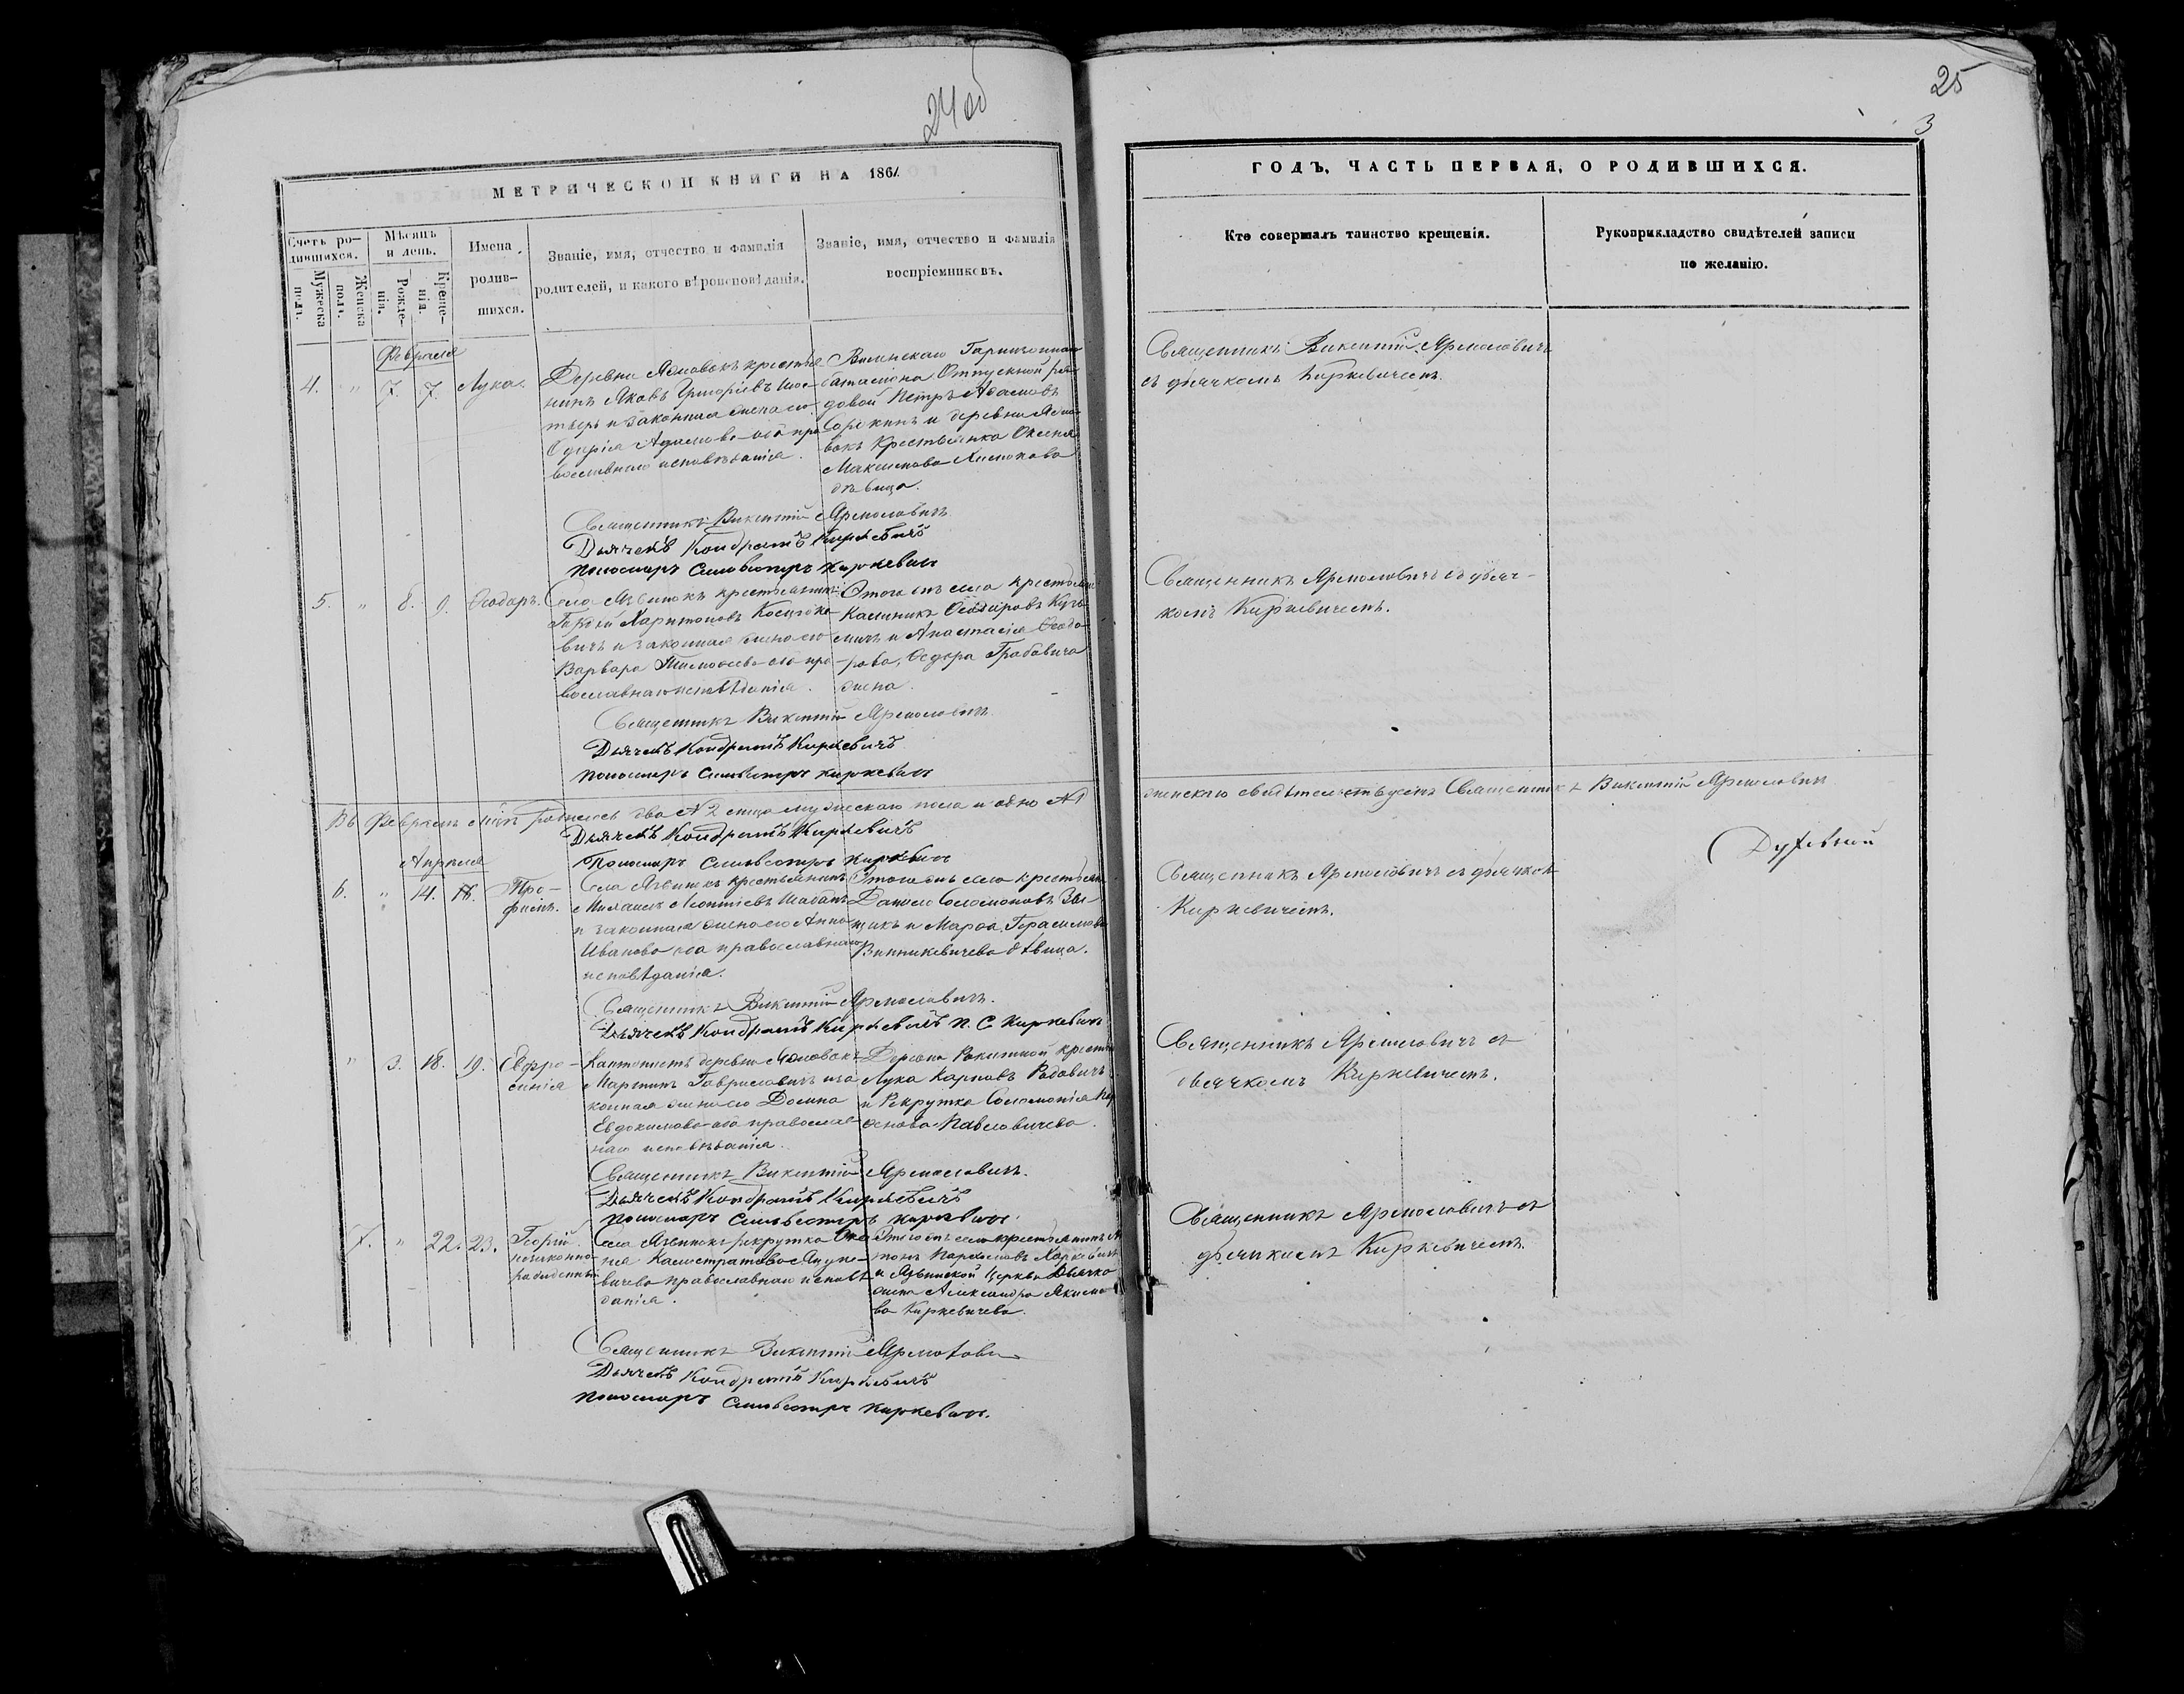 24об
МЕТРИЧЕСКОЙ КНИГИ НА 1861
Счетъ ро-
дившихся.
Мужеска
пола.
Женска
пола.
Мѣсяцъ
и день.
Рожде-
нія.
Креще-
нія.
Имена
родив-
шихся.
Званіе, имя, отчество и фамилія
родителей, и какого вѣроисповѣданія.
Званіе, имя, отчество и фамилія
воспріемниковъ.
Февраля
4. " 7. 7. Лука.
Деревни крестья-
нинъ Яковъ Григоріевъ
и законная жена его
Адамова оба пра-
вославнаго исповѣданія.
Виленскаго Гарнизоннаго
баталіона Отпускной ря-
довой Петръ Адамовъ
Сорокинъ и деревни
крестьянка
Максимова
дѣвица.
Священникъ Викентій Ярмоловичъ
Дьячекъ Кондратъ Киркевичъ
Пономаръ Сильвестръ Киркевичъ
5. " 8. 9. Ѳеодоръ.
Села крестьянинъ
Харитоновъ
вичъ и законная жена его
Варвара Тимоѳеева оба пра-
вославнаго исповѣданія.
Этогожъ села крестьяне
Калиникъ Ѳеодоровъ
и Анастасія Ѳеодо-
рова, Ѳедора Грабовича
жена.
Священникъ Викентій Ярмоловичъ
Дьячекъ Кондратъ Киркевичъ
Пономаръ Сильвестръ Киркевичъ
Въ Февралѣ м-цѣ родилось два № 2 лица мужескаго пола и одно № 1
Дьячекъ Кондратъ Киркевичъ
Пономаръ Сильвестръ Киркевичъ
Апреля
6. " 14. 18. Тро-
фимъ.
Села крестьянинъ
Михаилъ Леонтіевъ Шабанъ
и законная жена его Анна
Иванова оба православнаго
исповѣданія.
Этогожъ села крестьян.
Данило Соломоновъ
и Марѳа Герасимова
Винникевичева дѣвица.
Священникъ Викентій Ярмоловичъ.
Дьячекъ Кондратъ Киркевичъ П. С. Киркевичъ
" 3. 18. 19. Евфро-
синія
Кантонистъ деревни
Мартинъ Гавриловичъ и за-
конная жена его Домна
Евдокимова оба православ-
наго исповѣданія.
Деревни Ракитной крестьян.
Лука Карповъ Радовичъ
и Рекрутка Соломонія
Павловичева.
Священникъ Викентій Ярмоловичъ.
Дьячекъ Кондратъ Киркевичъ
Пономаръ Сильвестръ Киркевичъ.
7. " 22. 23. Георгій
незаконно-
рожденный
Села рекрутка
Калистратова
вичева православнаго исповѣ-
данія.
Этогожъ села крестьянинъ
Харкевичъ
и Язвинской Церкви Дьячка
жена Александра Якимо-
ва Киркевичева.
Священникъ Викентій Ярмолович
Дьячекъ Кондратъ Киркевичъ
Пономаръ Сильвестръ Киркевичъ.
25
3
ГОДЪ, ЧАСТЬ ПЕРВАЯ, О РОДИВШИХСЯ.
Кто совершалъ таинство крещенія.
Рукоприкладство свидѣтелей записи
по желанію.
Священникъ Викентій Ярмоловичъ
съ дьячкомъ Киркевичемъ.
Священникъ Ярмоловичъ съ дьяч-
комъ Киркевичемъ.
женскаго свидѣтельствуемъ Священникъ Викентій Ярмоловичъ
Духовный
Священникъ Ярмоловичъ съ дьячкомъ
Киркевичемъ.
Священникъ Ярмоловичъ съ
дьячкомъ Киркевичемъ.
Священникъ Ярмоловичъ съ
дьячкомъ Киркевичемъ.